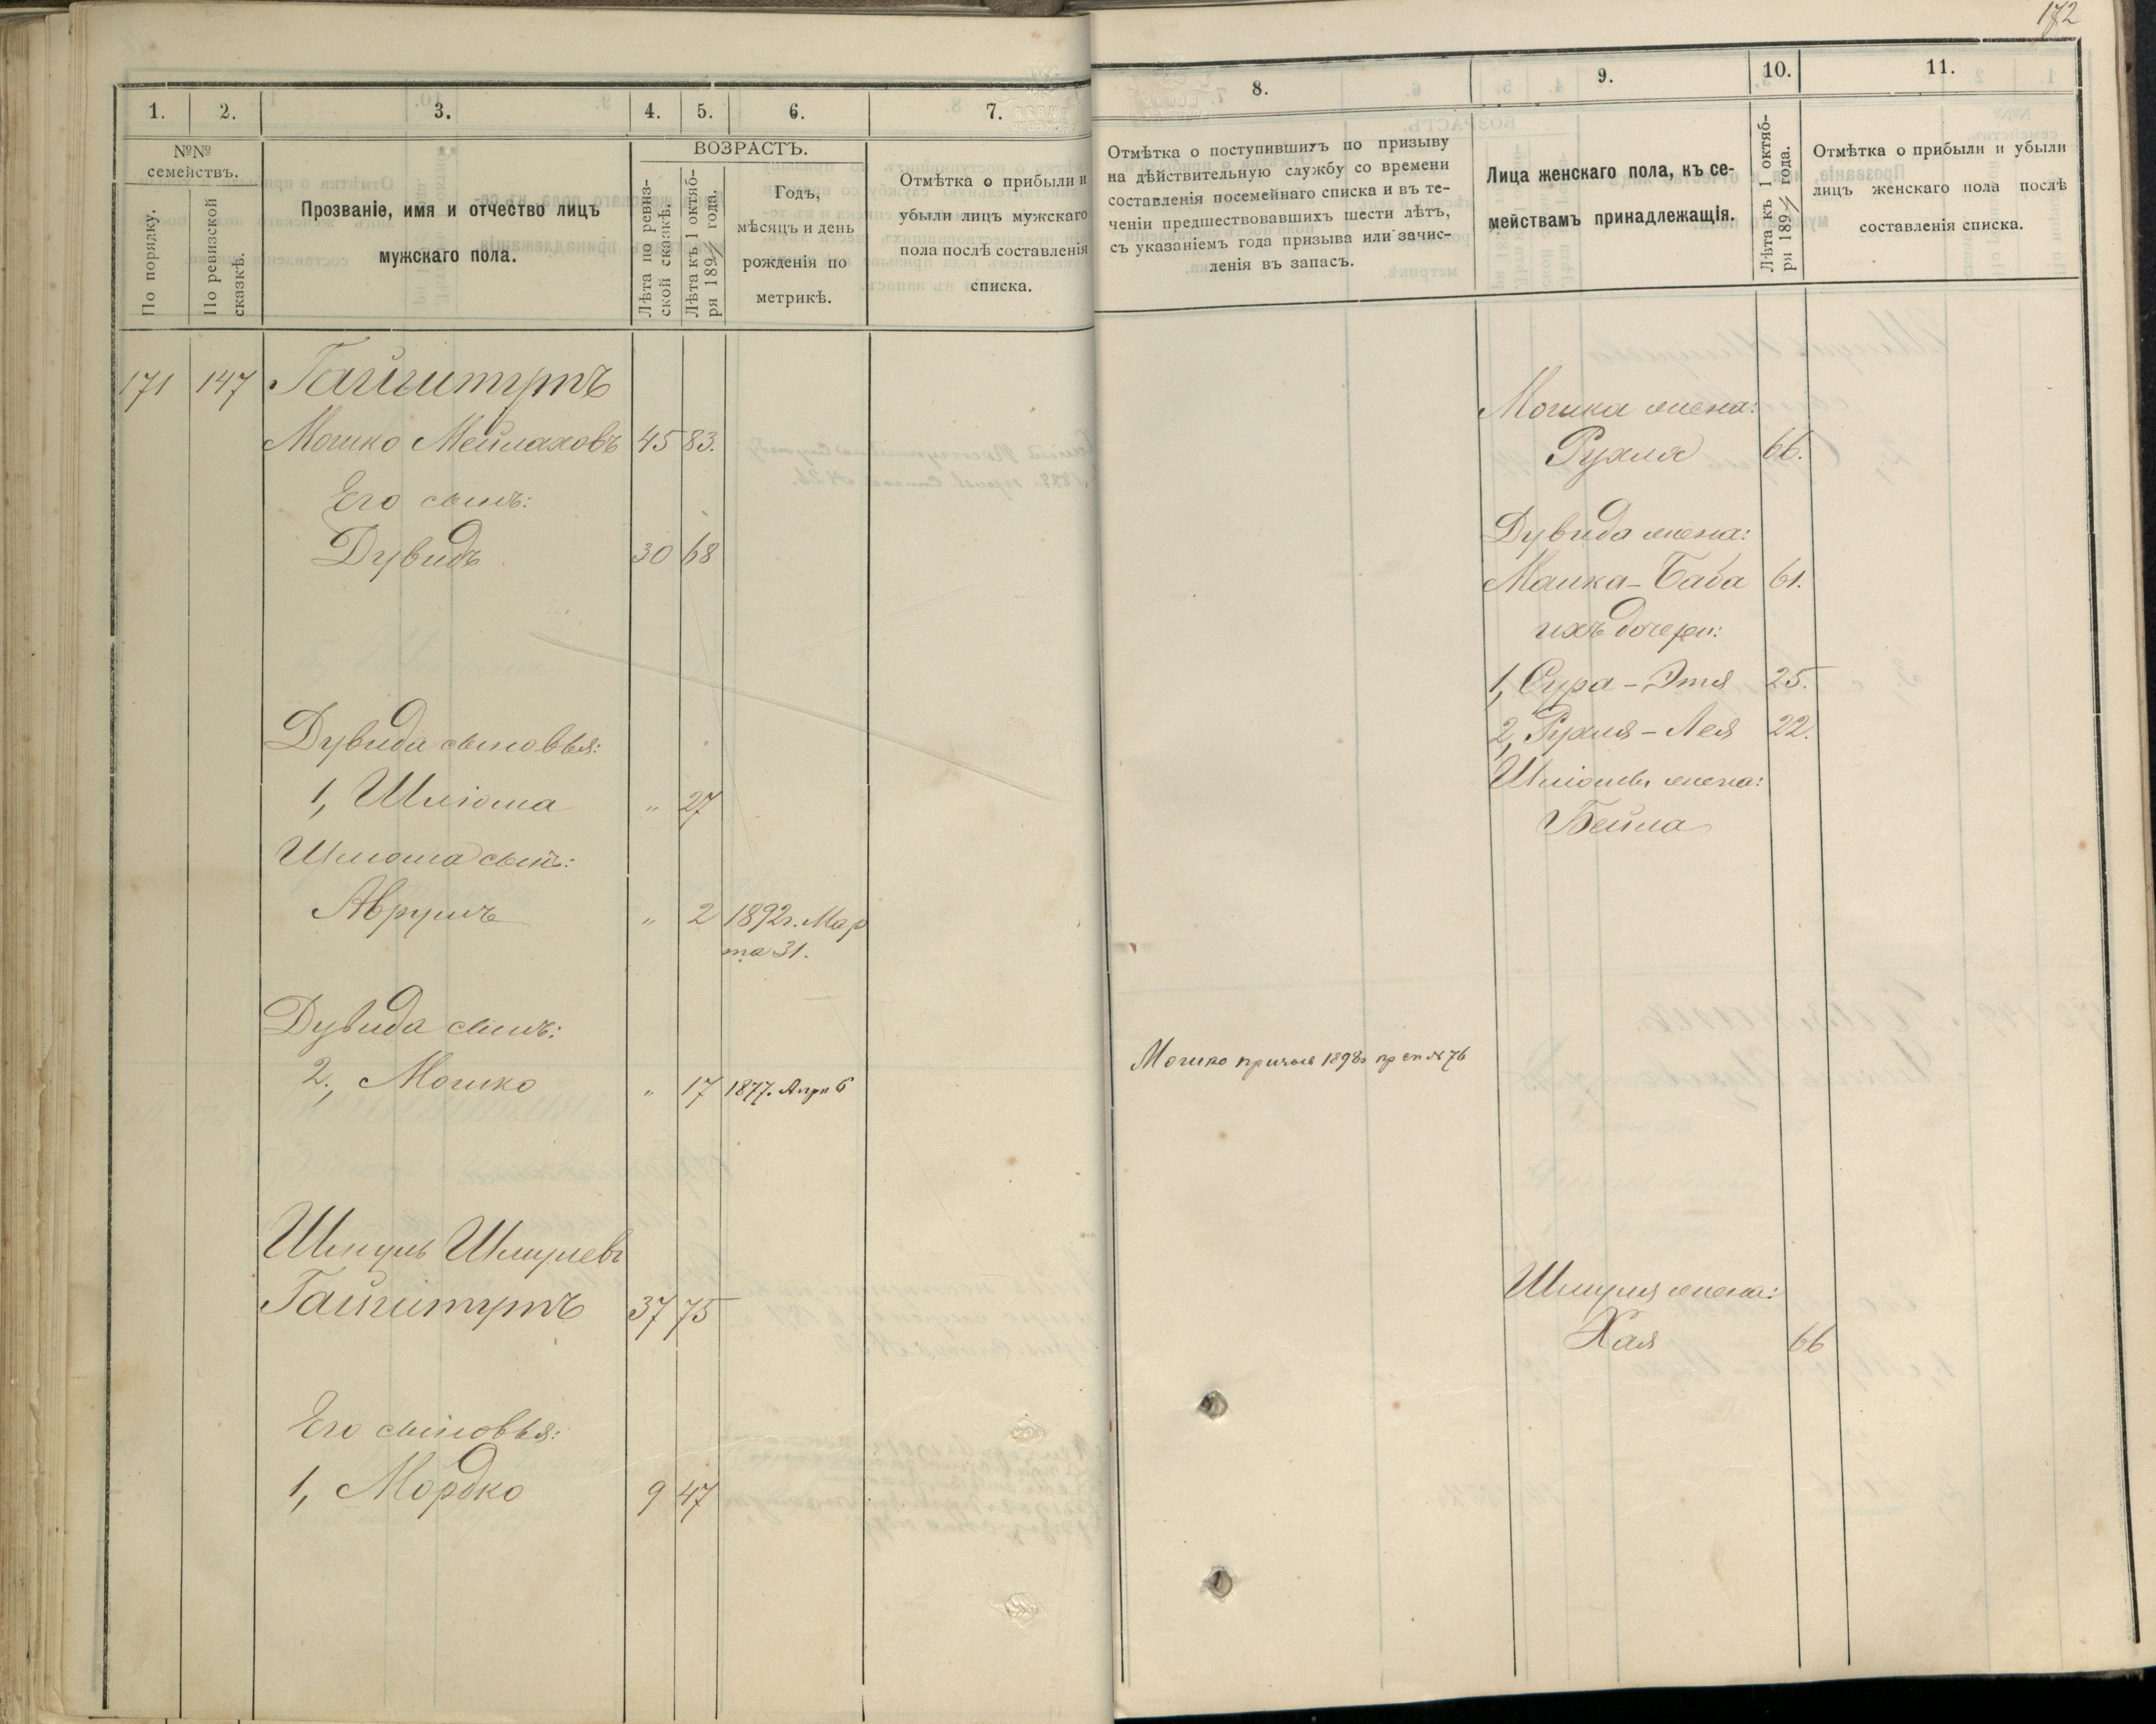 172
1.
2.
3.
4.
5.
6.
7.
№№ семействъ.
По порядку.
По ревизской сказкѣ.
Прозваніе, имя и отчество лицъ
мужскаго пола.
ВОЗРАСТЪ.
Лѣта по ревиз-
ской сказкѣ.
Лѣта къ 1 октяб-
ря 1894 года.
Годъ,
мѣсяцъ и день
рожденія по
метрикѣ.
Отмѣтка о прибыли и
убыли лицъ мужскаго
пола послѣ составленія
списка.
171 147 Гайшитутъ
Мошко Мейлаховъ 45 83.
Его сынъ:
Дувидъ 30 68
Дувида сыновья:
1, Шліома " 27
Шліома сынъ:
Аврумъ " 2 1892г. Мар
та 31.
Дувида сынъ:
2, Мошко " 17 1877. Апрл 6
Шмуль Шмулевъ
37 75
Его сыновья:
1, Мордко 9 47
8.
9.
10.
11.
Отмѣтка о поступившихъ по призыву
на дѣйствительную службу со времени
составленія посемейнаго списка и въ те-
ченіи предшествовавшихъ шести лѣтъ,
съ указаніемъ года призыва или зачис-
ленія въ запасъ.
Лица женскаго пола, къ се-
мействамъ принадлежащія.
Лѣта къ 1 октяб-
ря 1894 года.
Отмѣтка о прибыли и убыли
лицъ женскаго пола послѣ
составленія списка.
Мошка жена:
Рухля 66.
Дувида жена:
Маика-Баба 61.
ихъ дочери:
1, Сура-Этя 25.
2, Рухля-Лея 22.
Шліомы жена:
Бейла
Мошко призыв 1898г пр сп № 76
Шмуля жена:
Хая 66